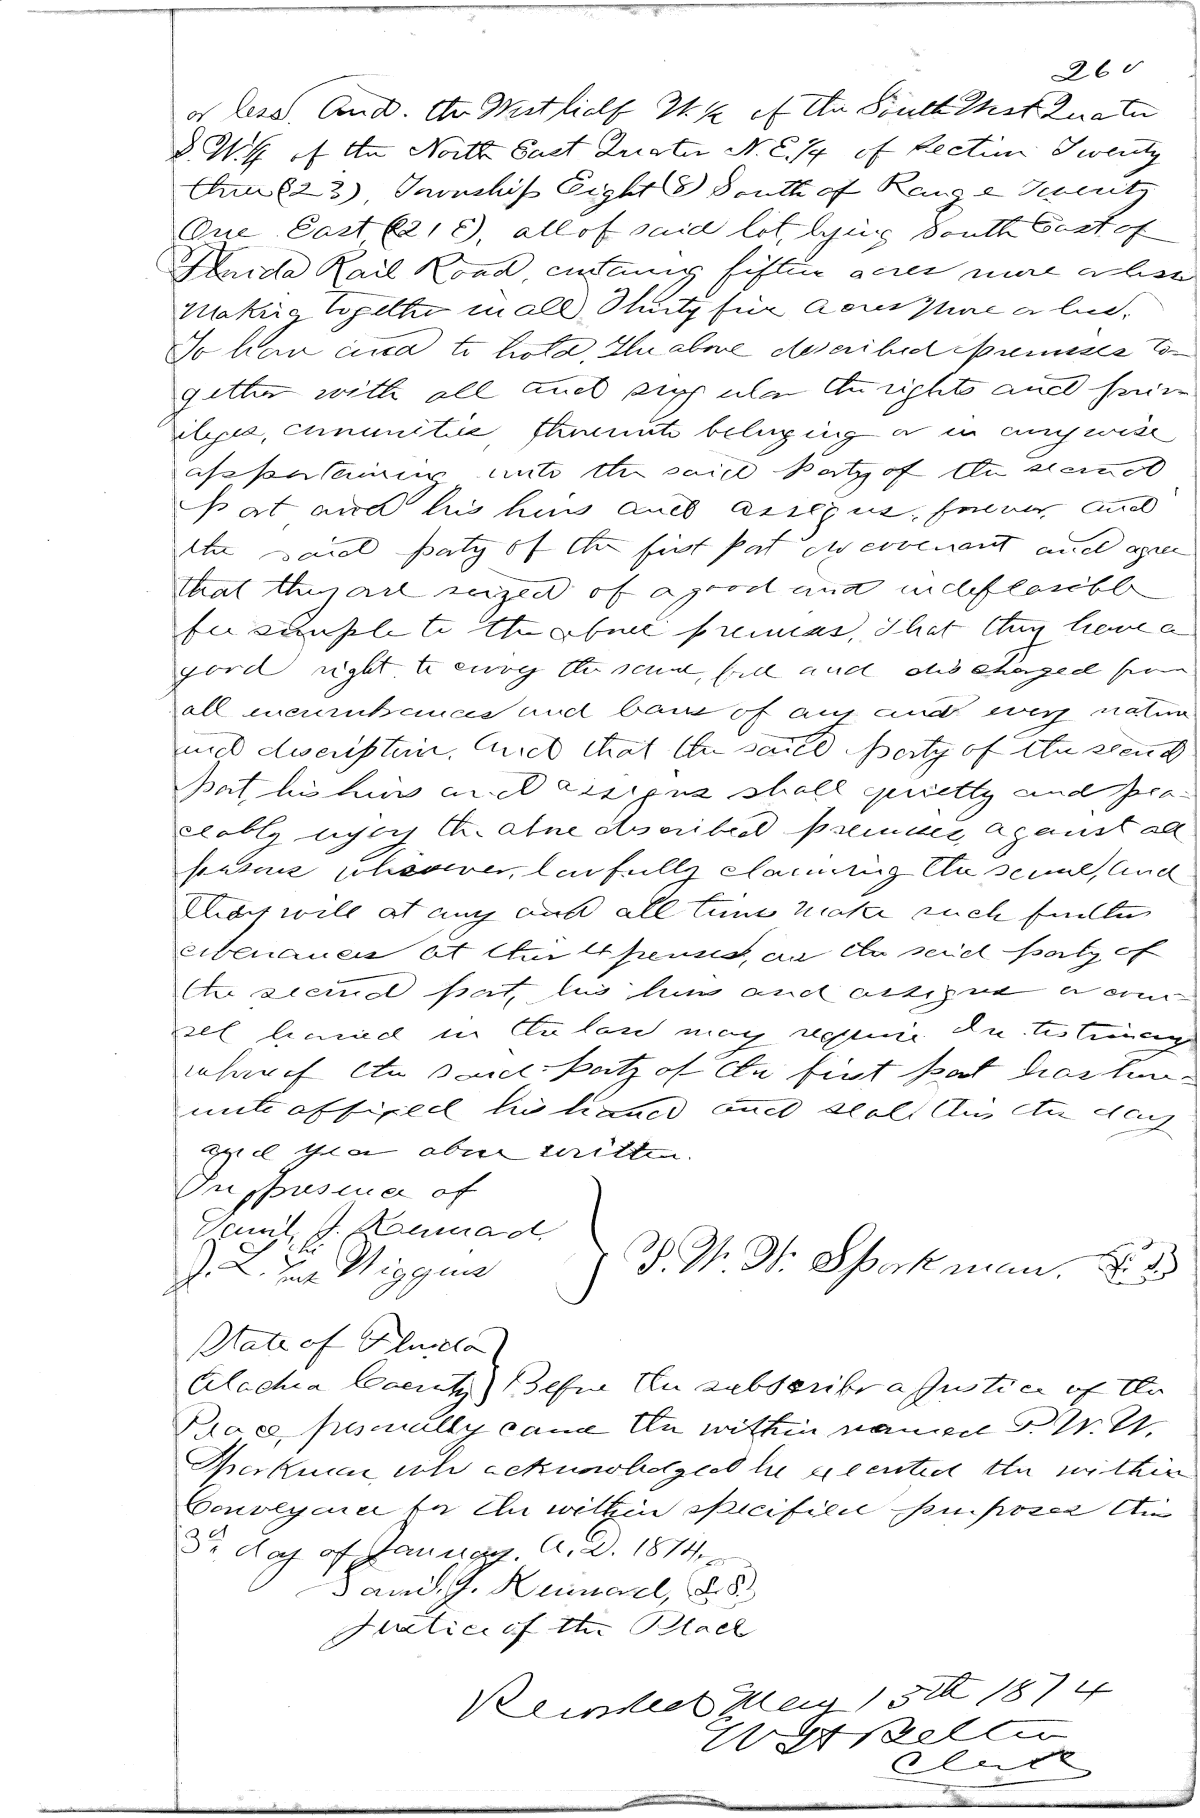 260
or less. And. the West half W. ½ of the South West Quater
S. W. ¼ of the North East Quater N. E. ¼ of Section Twenty
three (23), Township Eight (8) South of Range Twenty
One East, (21 E), all of said lot, lying South East of
Florida Rail Road, containg fifteen acres more or less
Making together in all Thirty five acres More or less.
To have and to hold, The above described premises to-
gether with all and singular the rights and priv
ileges, emunities, thereunto belonging or in anywise
appertaining unto the said party of the second
part and his heirs and assigns, forever, and
the said party of the first part do covenant and agree
that they are seized of a good and indefeasible
fee simple to the above premises, That they have a
good right to convey the same, free and discharged from
all encumbrances and bars of any and every nature
and description. And that the said party of the second
part, his heirs and assigns shall quietly and pea-
ceably enjoy the above described premises, against all
persons whosever, lawfully claiming the same, And
they will at any and all times make such further
at their expenses, as the said party of
the second part, his heirs and assigns or coun-
sel learned in the law may require. In testimony
whereof the said party of the first part has here-
unto affixed his hand and seal this the day
and year above written.
In presence of
Saml. J. Kennard.
J. L. his mark Wiggins } P. W. W. Sporkman. (L. S.)
State of Florida }
Alachua County } Before the subscriber a Justice of the
Peace, personally came the within named P. W. W.
Sporkman who acknowledged he executed the within
Conveyance for the within specified purposes this
3d. day of January. A. D. 1874.
Saml. J. Kennard, (L. S.)
Justice of the Peace
Recorded May 15th 1874
W H Belton
Clerk